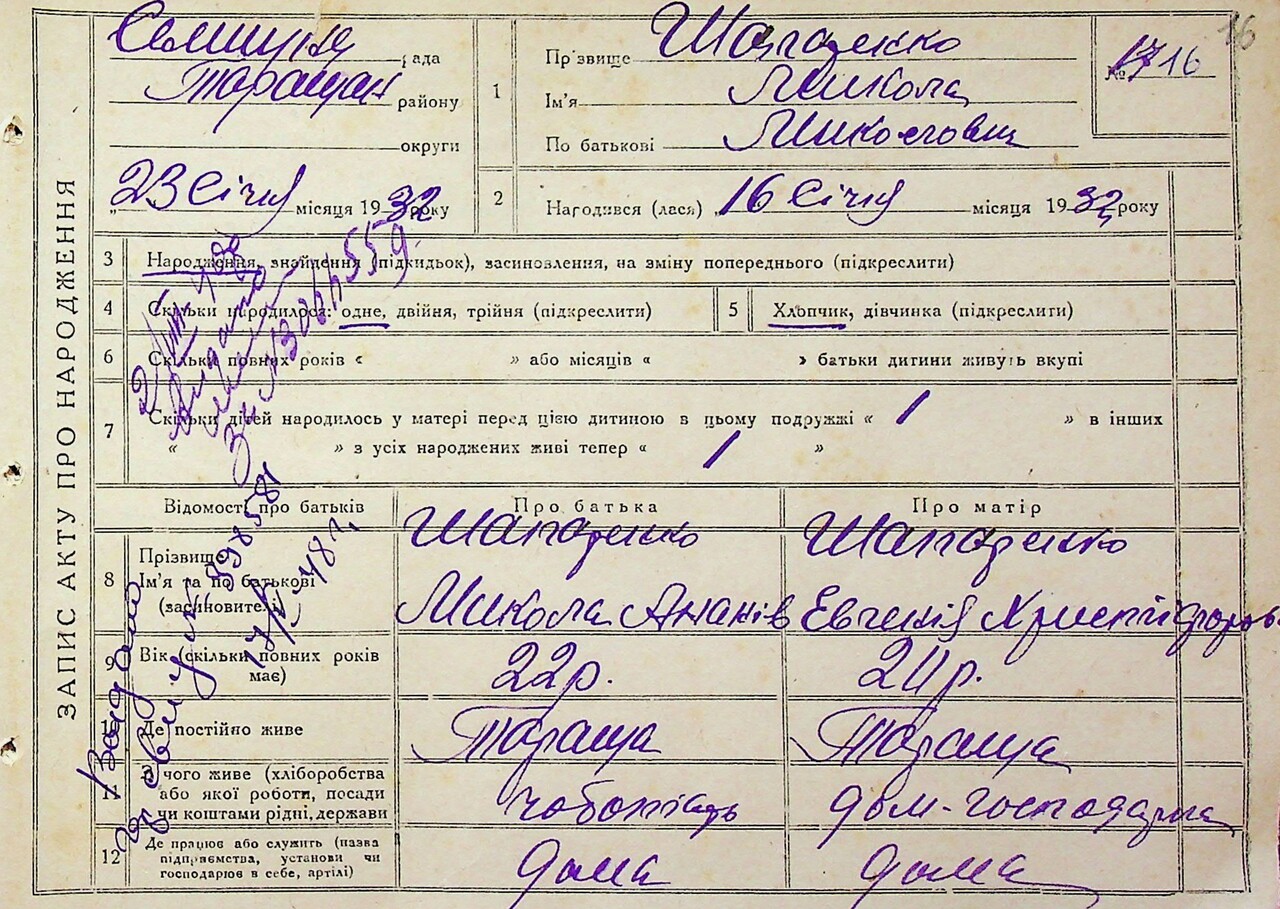 16
Селищна рада
Таращан району
округи
„23 Січня місяця 1932 року
1
Прізвище Шапаренко
Ім'я Микола
По батькові Миколович
№ 16
2
Народився (лася) „16 Січня місяця 1932 року
ЗАПИС АКТУ ПРО НАРОДЖЕННЯ
3 Народження, знайдення (підкидьок), засиновлення, на зміну попереднього (підкреслити)
4 Скільки народилося: одне, двійня, трійня (підкреслити)
5 Хлопчик, дівчинка (підкреслити)
6 Скільки повних років « » або місяців « » батьки дитини живуть вкупі
7 Скільки дітей народилось у матері перед цією дитиною в цьому подружжі « 1 » в інших
« » з усіх народжених живі тепер « 1 »
Відомості про батьків Про батька Про матір
8 Прізвище
Ім'я та по батькові
(засиновителі)
Шапаренко
Микола Ананів
Шапаренко
Евгенія Христифоров.
9 Вік (скільки повних років має) 22р.
10 Де постійно живе Тараща Тараща
11 З чого живе (хліборобства
або якої роботи, посади
чи коштами рідні, держави
чоботарь дом-господарка
12 Де працює або служить (назва
підприємства, установи чи
господарює в себе, артілі)
дома дома
Видано